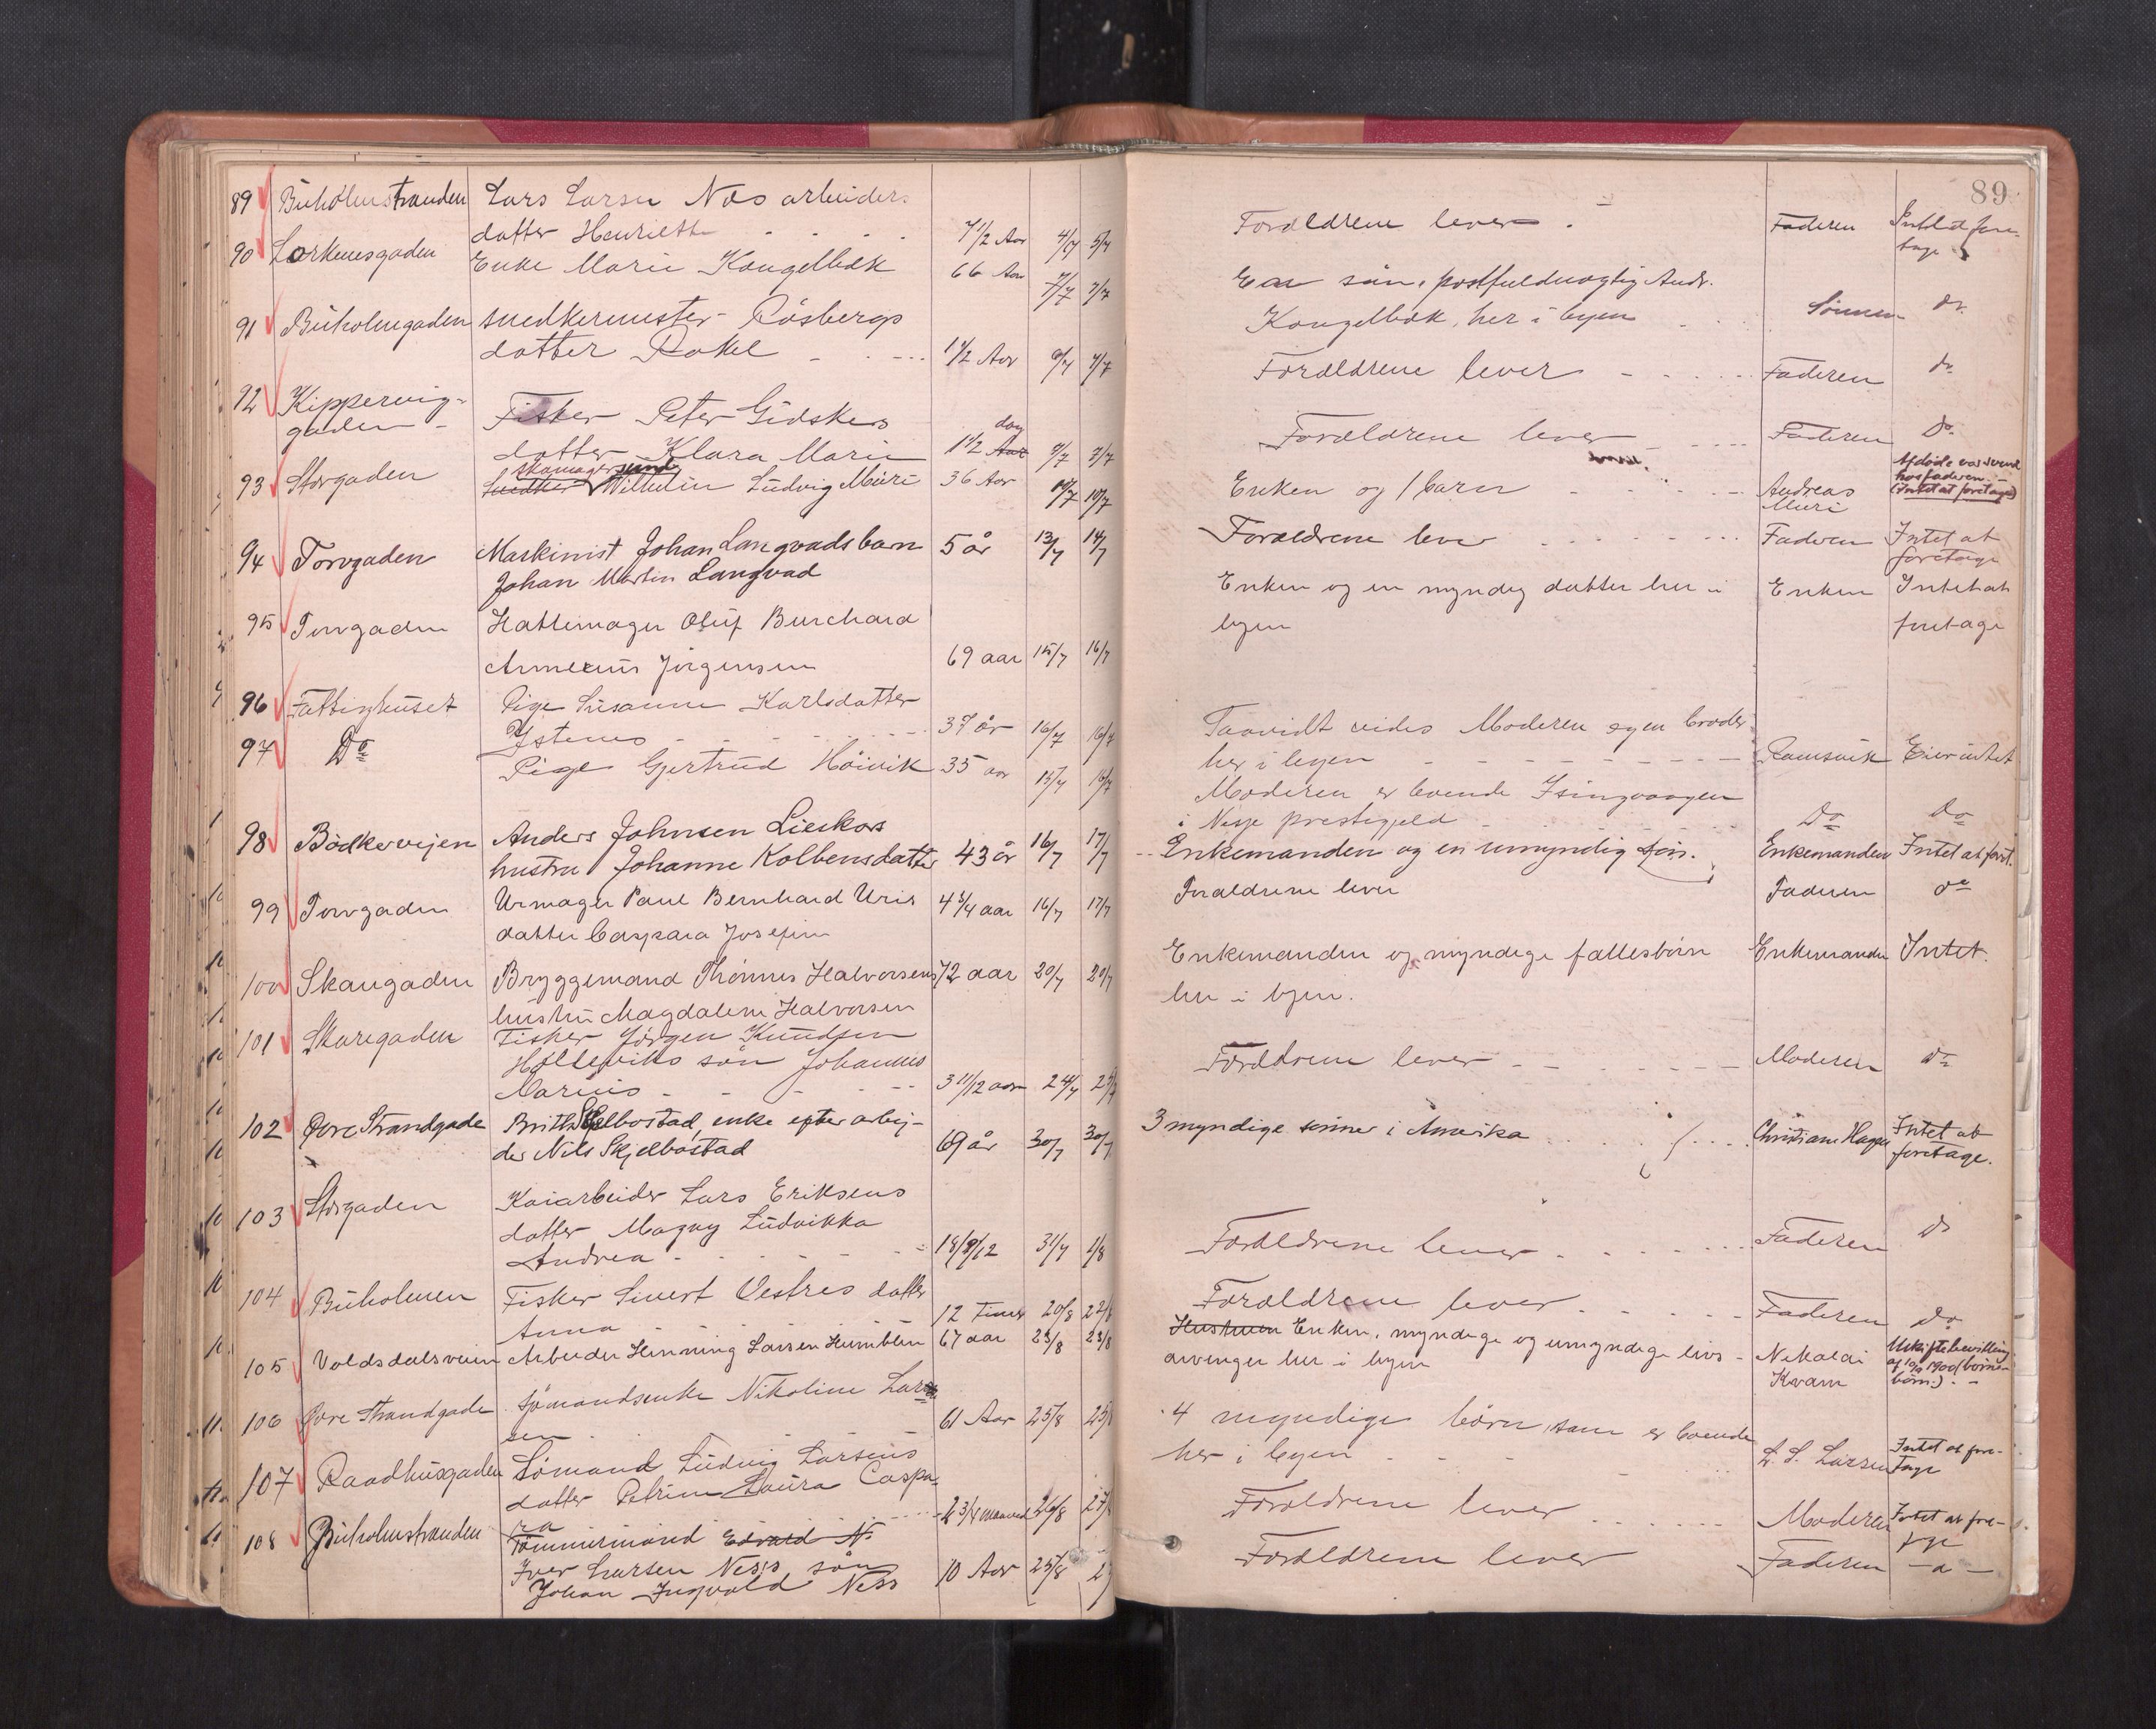 89 Buholmstranden Lars Larsen Næs arbeiders
datter Henriette 7 1/2 Aar 4/7 5/7
90 Lorkenesgaden Enke Marie Kongelbæk 66 Aar 7/7 7/7
91 Buholmgaden snedkermester Røsbergs
datter Rakel 1 1/2 Aar 6/7 7/7
92 Kippervig-
gaden Fisker Peter Gidskes
datter Klara Marie 1 1/2 Aar dag 9/7 7/7
93 Storgaden Snedker skomagersvend Wilhelm Ludvig Muri 36 Aar 10/7 10/7
94 Torvgaden Maskinist Johan Langvads barn 5 år 13/7 14/7
Johan Martin Langvad
95 Torvgaden Hattemager Oluf Burchard
Jørgensen 69 aar 15/7 16/7
96 Fattighuset Pige Susanne Karlsdatter
Ystenes 37 år 16/7 16/7
97 Do Pige Gjertrud Høivik 35 aar 15/7 16/7
98 Bødkervejen Anders Johnsen Lieskars
hustru Johanne Kolbensdatter 43 år 16/7 17/7
99 Torvgaden Urmager Paul Bernhard Uris 4 3/4 aar 16/7 17/7
datter Caspara Josefine
100 Skaugaden Bryggemand Thønnes Halvorsens 72 aar 20/7 20/7
hustru Magdalene Halvorsen
101 Skaregaden Fisker Jørgen Knudsen
Holleviks søn Johannes
Marius 3 11/12 aar 24/7 25/7
102 Øvre Strandgade Brith Skjelbostad, enke efter arbej-
der Nils Skjelbostad 69 år 30/7 30/7
103 Storgaden Kaiarbeider Lars Eriksens
datter Magny Ludvikka
Andrea 18/9/12 31/7 1/8
104 Buholmen Fisker Sivert Vestres datter
Anna 12 timer 20/8 22/8
105 Voldsdalsveien Arbeider Henning Larsen Humblen 67 aar 23/8 23/8
106 Øvre Strandgade sjømandsenke Nikoline Lar-
sen 61 Aar 25/8 25/8
107 Raadhusgaden Sømand Ludvig Larsens
datter Petrine Laura Caspa-
ra 2 3/4 maaned 26/8 27/8
108 Buholmstranden Tømmermand Edvard N.
Iver Larsen Ness's søn
Johan Ingvald Ness 10 Aar 25/8 2
89
Forældrene lever. Faderen Intet at fore-
tage.
En søn, postfuldmægtig Andr.
Kongelbæk, her i byen Sønnen do
Forældrene lever Faderen do
Forældrene lever Faderen Do
Enken og 1 barn Andreas
Muri Afdøde var svend
hos faderen. -
(Intet at foretage)
Forældrene lever Faderen Intet at
foretage
Enken og en myndig datter her i
byen Enken Intet at
foretage
Saavidt vides Moderen og en broder
her i byen Ramsvik Eier intet
Moderen er boende
i Nesje prestegjeld Do Do
Enkemanden og en umyndig søn. Enkemanden Intet at foret.
Forældrene lever Faderen do
Enkemanden og myndige fællesbørn
her i byen. Enkemanden Intet.
Forældrene lever Moderen do
3 myndige sønner i Amerika Christiane Hagen Intet at
foretage.
Forældrene lever Faderen do
Forældrene lever Faderen Do
Hustruen Enken, myndige og umyndige livs-
arvinger her i byen Nikolai
Kvam Uskiftebevilling
af 10/9 1900 (børne-
børn.) -
4 myndige børn, som er boende
her i byen L. S. Larsen Intet at fore-
tage
Forældrene lever Moderen Intet at fore-
tage
Forældrene lever Faderen - a -